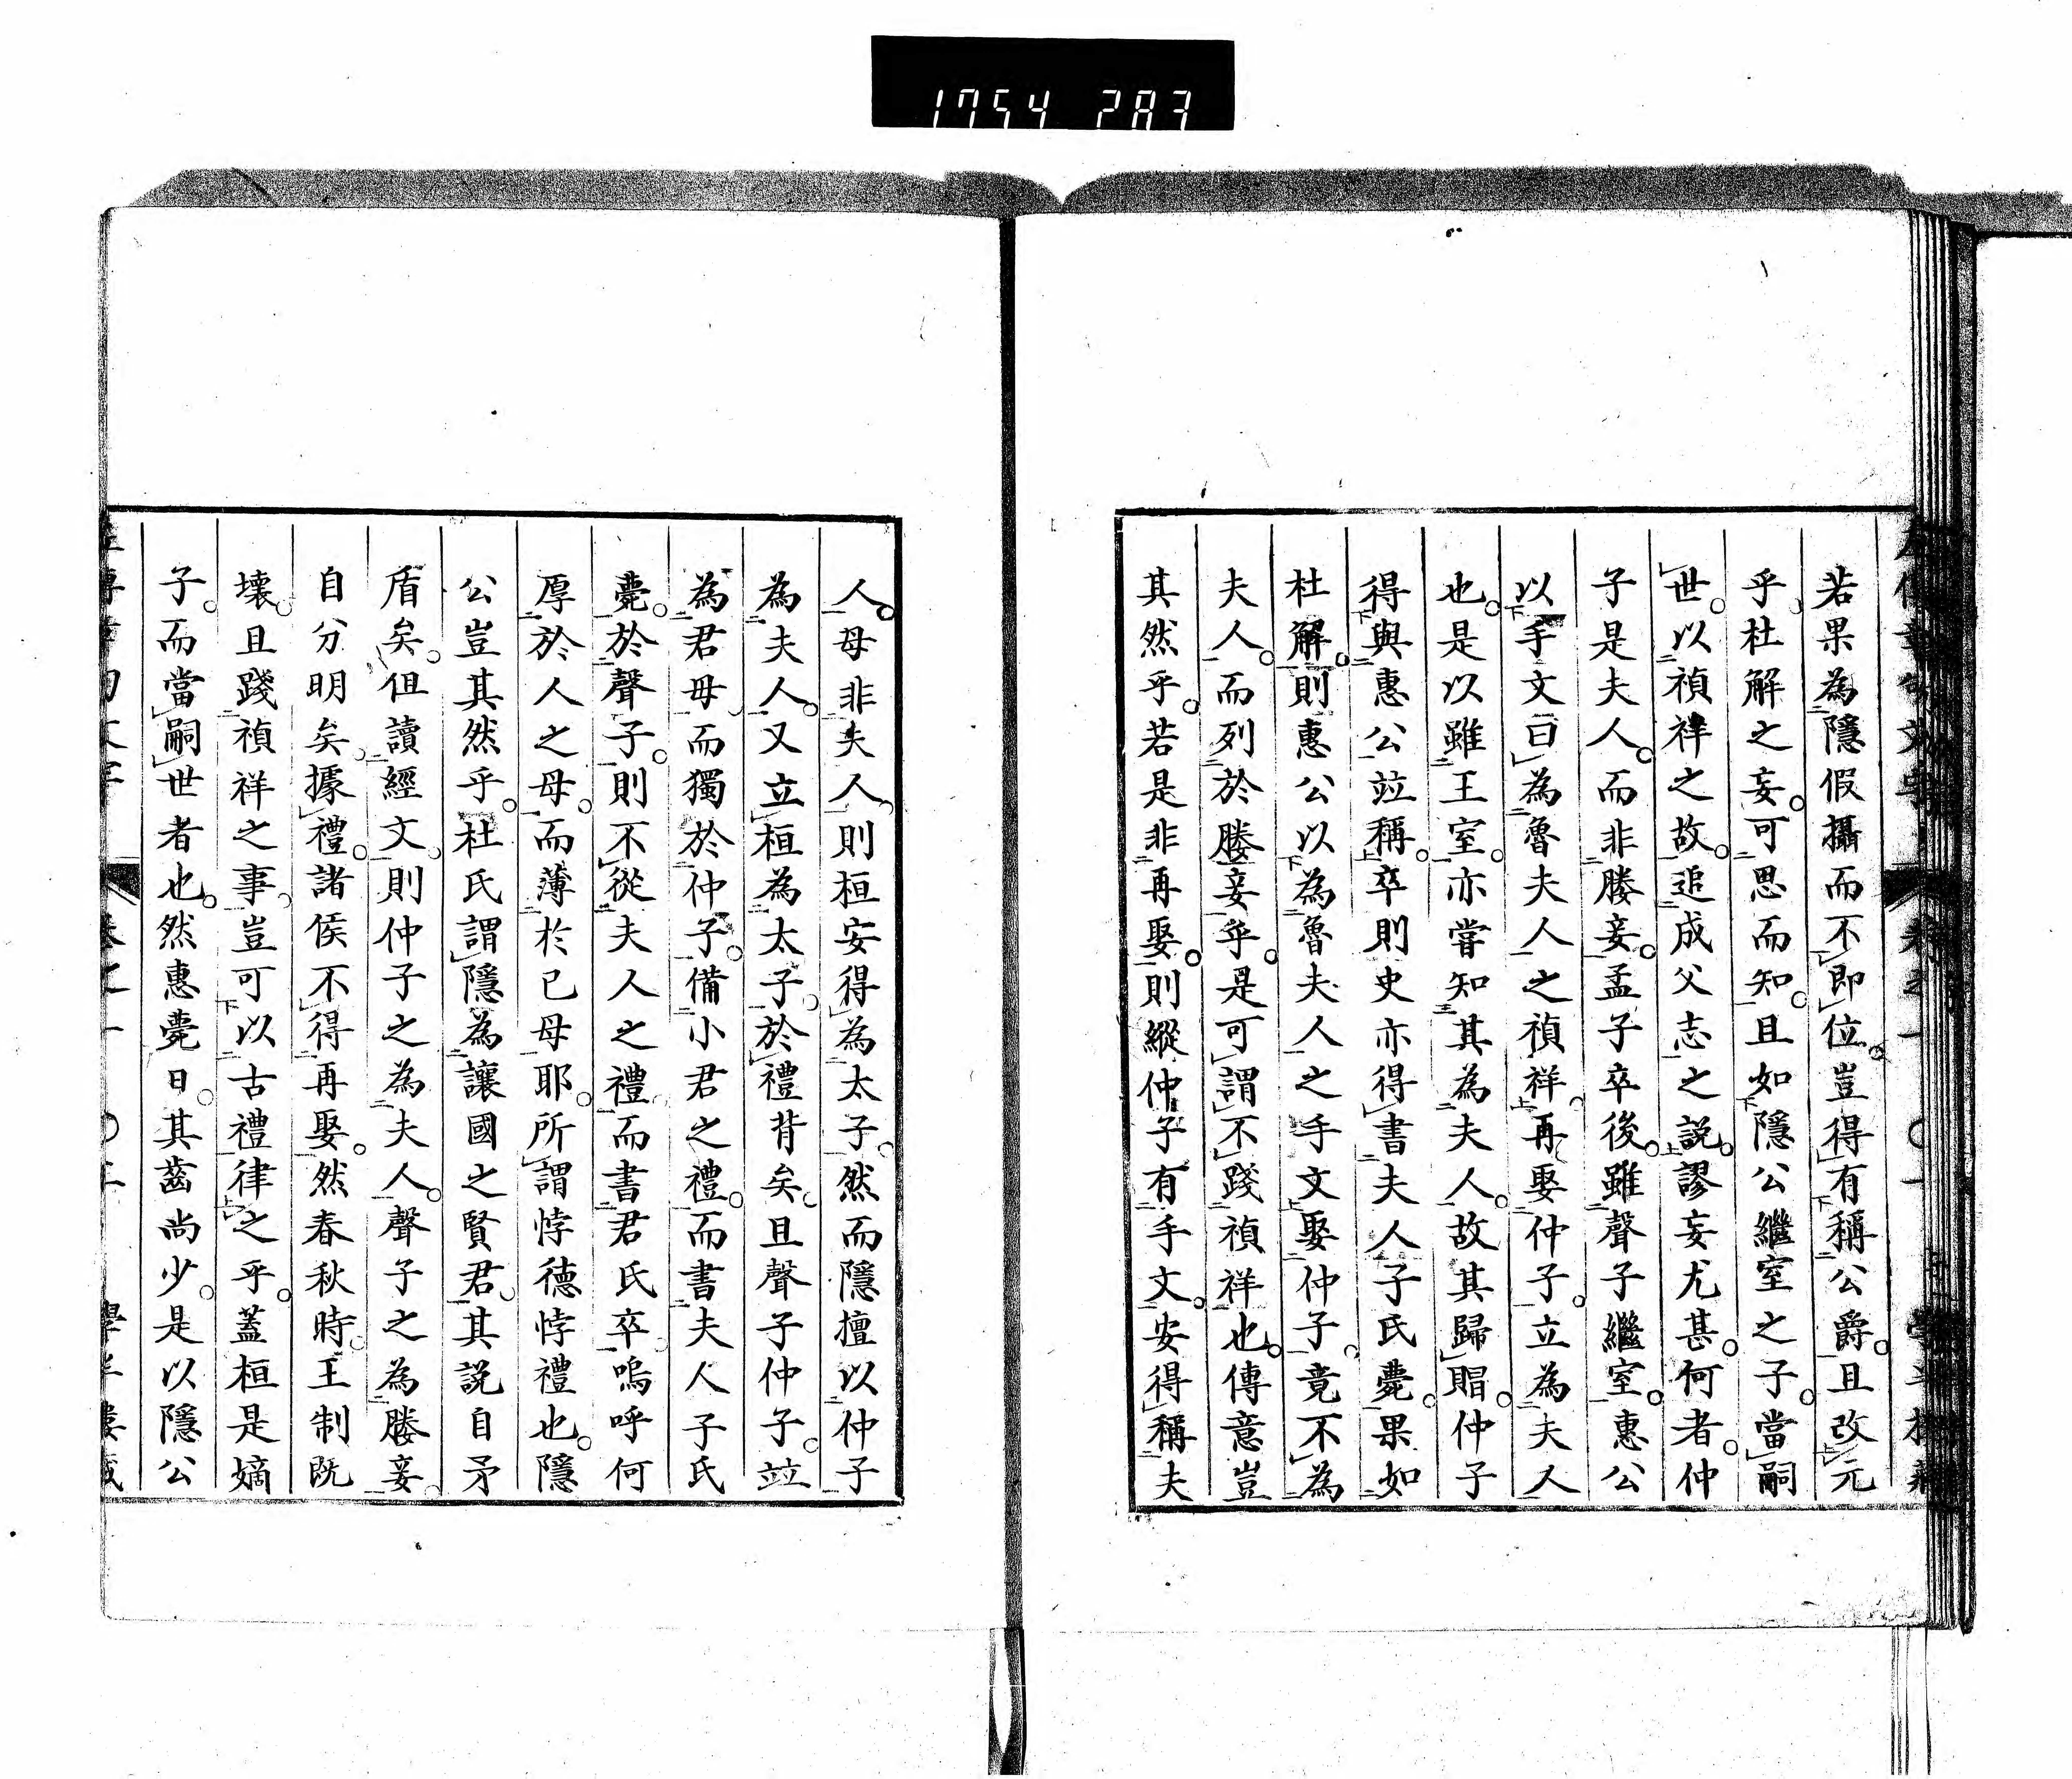 1754 283
若果為隱假攝而不即位豈得有稱公爵且改元
乎杜解之妄可思而知且如隱公繼室之子當嗣
世以禎祥之故追成父志之説謬妄尤甚何者仲
子是夫人而非媵妾孟子卒後雖聲子繼室惠公
以手文曰為魯夫人之禎祥再娶仲子立為夫人
也是以雖王室亦嘗知其為夫人故其歸賵仲子
得與惠公竝稱卒則史亦得書夫人子氏薨果如
杜解則惠公以為魯夫人之手文娶仲子竟不為
夫人而列於媵妾乎是可謂不踐禎祥也傳意豈
其然乎若是非再娶則縱仲子有手文安得稱夫
人母非夫人則桓安得為太子然而隱擅以仲子
為夫人又立桓為太子於禮背矣且聲子仲子竝
為君毋而獨於仲子備小君之禮而書夫人子氏
薨於聲子則不從夫人之禮而書君氏卒嗚呼何
厚於人之母而薄於已母耶所謂悖德悖禮也隱
公豈其然乎杜氏謂隱為讓國之賢君其説自矛
盾矣但讀經文則仲子之為夫人聲子之為媵妾
自分明矣據禮諸侯不得再娶然春秋時王制既
壞且踐禎祥之事豈可以古禮律之乎蓋桓是嫡
子而當嗣世者也然惠薨日其齒尚少是以隱公